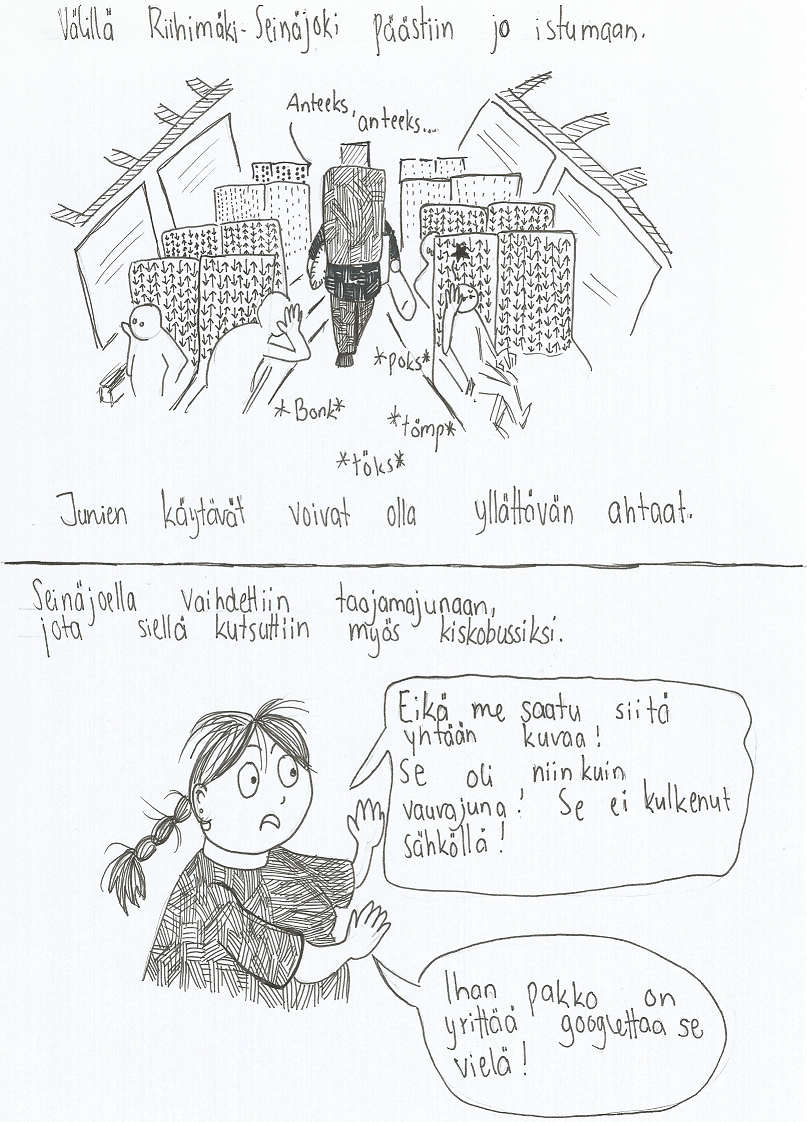 Välillä Riihimäki-Seinäjoki päästiin jo istumaan.
Anteeks, anteeks...
*poks*
*Bonk*
*tömp*
*töks*
Junien käytävät voivat olla yllättävän ahtaat.
Seinäjoella vaihdettiin taajamajunaan,
jota siellä kutsuttiin myös kiskobussiksi.
Eikä me saatu siitä
yhtään kuvaa!
Se oli niinkuin
vauvajuna! Se ei kulkenut
sähköllä!
Ihan pakko on
yrittää googlettaa se
vielä!